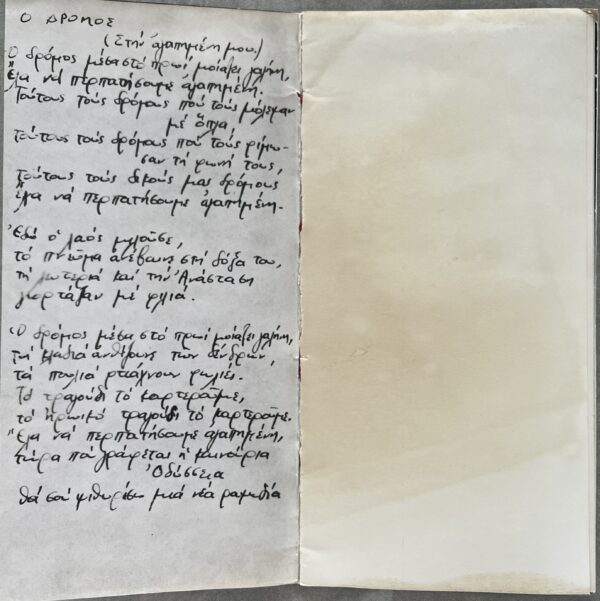 Ο ΔΡΟΜΟΣ
(Στήν ἀγαπημένη μου.)
Ὁ δρόμος μέσα στό πρωί μοιάζει γαλήνη,
Ἔλα νά περπατήσουμε ἀγαπημένη.
Τούτους τούς δρόμους πού τούς μόλεψαν
μέ ὅπλα,
τούτους τούς δρόμους πού τούς ρίμω-
σαν τή φωνή τους,
τούτους τούς δικούς μας δρόμους
ἔλα νά περπατήσουμε ἀγαπημένη.
Ἐδῶ ὁ λαός μιλοῦσε,
τό πνεῦμα ἀνέβαινε στή δόξα του,
τή λευτεριά καί τήν Ἀνάσταση
γιορτάζαν μέ φιλιά.
Ὁ δρόμος μέσα στό πρωί μοιάζει γαλήνη,
τά κλαδιά ἀνθίζουν των δένδρων,
τά πουλιά φτιάχνουν φωλιές.
Τό τραγούδι τό καρτεροῦμε,
τό ἡρωικό τραγούδι τό καρτεροῦμε.
Ἔλα νά περπατήσουμε ἀγαπημένη,
τώρα πού γράφεται ἡ καινούρια
Ὀδύσσεια
θά σοῦ ψιθυρίσω μιά νέα ραψωδία